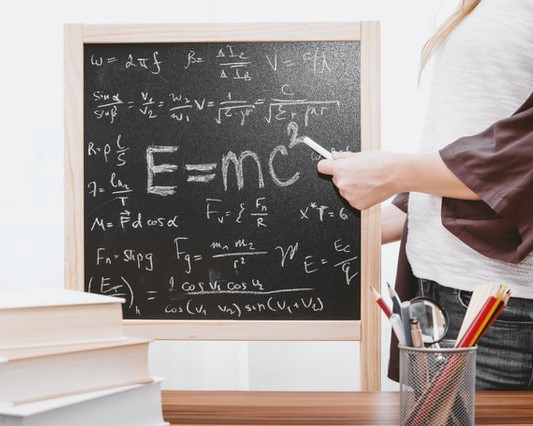 ω = 2πf β = ΔI_c / ΔI_B V = c/λ
sinα / sinβ = v₁ / v₂ = w₂ / w₁ V = 1 / √ε·μ = c / √εr μr
R = ρ l / S
E=mc²
λ = ln2 / T
M = F d cosα Fv = { Fn / R x*T = 6
Fn = Shpg Fg = m₁ m₂ / r² E = Ec / q
= 2 cos v₁ cos v₂ / cos(v₁ v₂) sin(v₁+v₂)